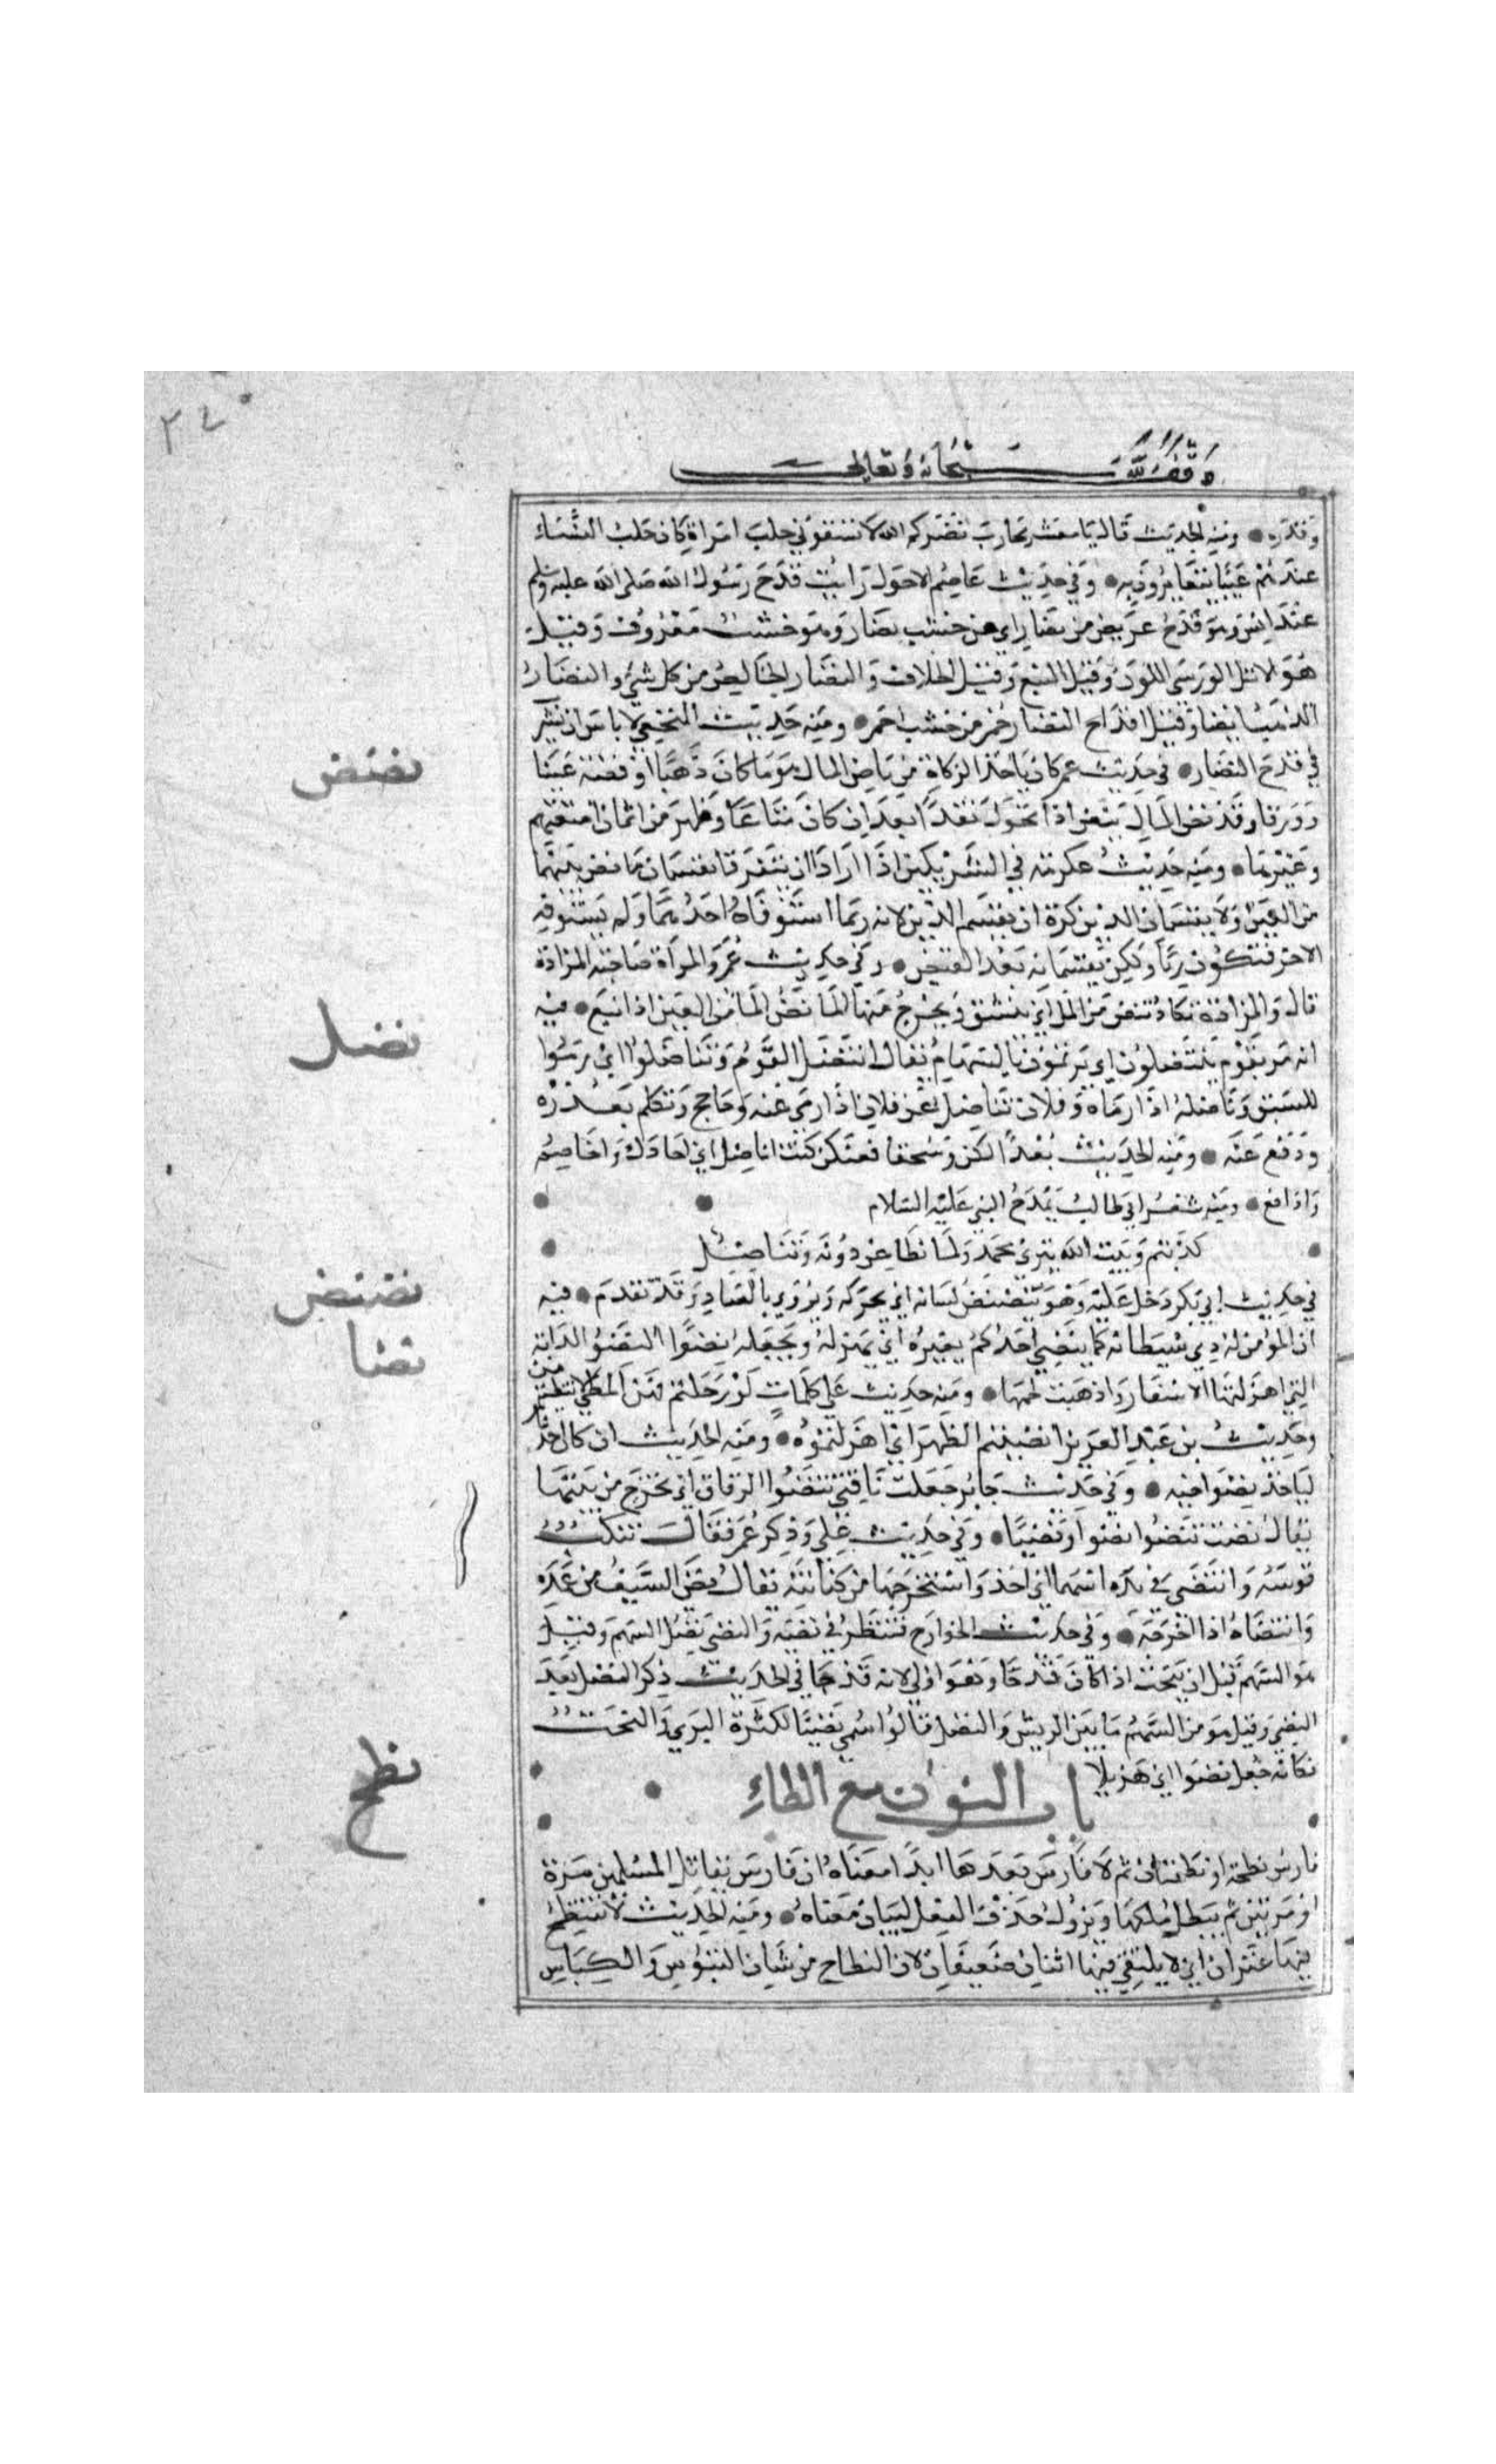 وقف لله سبحانه وتعالى
وقدره ومنه الحديث قال يا معشر محارب نضركم الله لا تسقوني حلب امراة كان حلب النساء
عندهم عيبا يتعايرون به وفي حديث عاصم الاحول رايت قدح رسول الله صلى الله عليه وسلم
عند انس وهو قدح عريض من نضار اي من خشب نضار وهو خشب معروف وقيل
هو الاثل الورسي اللون وقيل النبع وقيل الخلاف والنضار الخالص من كل شيء والنضار
الذهب ايضا وقيل اقداح النضار حمر من خشب احمر ومنه حديث النخعي لا باس ان يشرب
في قدح النضار في حديث عمر كان ياخذ الزكاة من ناض المال هو ما كان ذهبا او فضة عينا
وورقا وقد نض المال ينض اذا تحول نقدا بعد ان كان متاعا وظهر من اثمان امتعتهم
وغيرها ومنه حديث عكرمة في الشريكين اذا ارادا ان يتفرقا يقتسمان ما نض بينهما
من العين ولا يقتسمان الدين كره ان يقتسم الدين لانه ربما استوفاه احدهما ولم يستوفه
الاخر فتكون ربا ولكن يقتسمانه بعد القبض وفي حديث عمر والمراة صاحبة المزادة
قال والمزادة تكاد تنض من الملء اي تنشق ويخرج منها الما نض الما من العين اذا نبع فيه
انه مر بقوم ينتضلون اي يرتمون بالسهام يقال انتضل القوم وتناضلوا اي رموا
للسبق وناضله اذا رماه وفلان يناضل عن فلان اذا رمى عنه وحاجج وتكلم بعذره
ودفع عنه ومنه الحديث بعدا لكن وسحقا فعنكن كنت اناضل اي اجادل واخاصم
وادافع ومنه شعر ابي طالب يمدح النبي عليه السلام
كذبتم وبيت الله يبزى محمد ولما نطاعن دونه ونناضل
في حديث ابي بكر دخل عليه وهو ينضنض لسانه اي يحركه ويروى بالصاد وقد تقدم فيه
ان المؤمن لينضي شيطانه كما ينضي احدكم بعيره اي يهزله ويجعله نضوا النضو الدابة
التي اهزلتها الاسفار واذهبت لحمها ومنه حديث علي كلمات لو رحلتم فيهن المطي لانضيتموهن
وحديث بن عبد العزيز انضيتم الظهر اي اهزلتموه ومنه الحديث ان كان احدنا
لياخذ نضو اخيه وفي حديث جابر جعلت ناقتي تنضوا الرفاق اي تخرج من بينها
يقال نضت تنضوا نضوا ونضيا وفي حديث علي وذكر عمر فقال تنكب
قوسه وانتضى في يده اسهما اي اخذ واستخرجها من كنانته يقال نضى السيف من غمده
وانتضاه اذا اخرجه وفي حديث الخوارج فينظر في نضيه والنضي نصل السهم وقيل
هو السهم قبل ان ينحت اذا كان قدحا وهو اولى لانه قد جا في الحديث ذكر النصل بعد
النضي وقيل هو من السهم ما بين الريش والنصل قالوا سمي نضيا لكثرة البري والنحت
فكانه جعل نضوا اي هزيلا
باب النون مع الطاء
فارس نطحة او نطحتان ثم لا فارس بعدها ابدا معناه ان فارس تقاتل المسلمين مرة
او مرتين ثم يبطل ملكها ويزول حذف الفعل لبيان معناه ومنه الحديث لا تنتطح
فيها عنزان اي لا يلتقي فيها اثنان ضعيفان لان النطاح من شان التيوس والكباش
نضض
نضل
نضنض
نضا
نطح